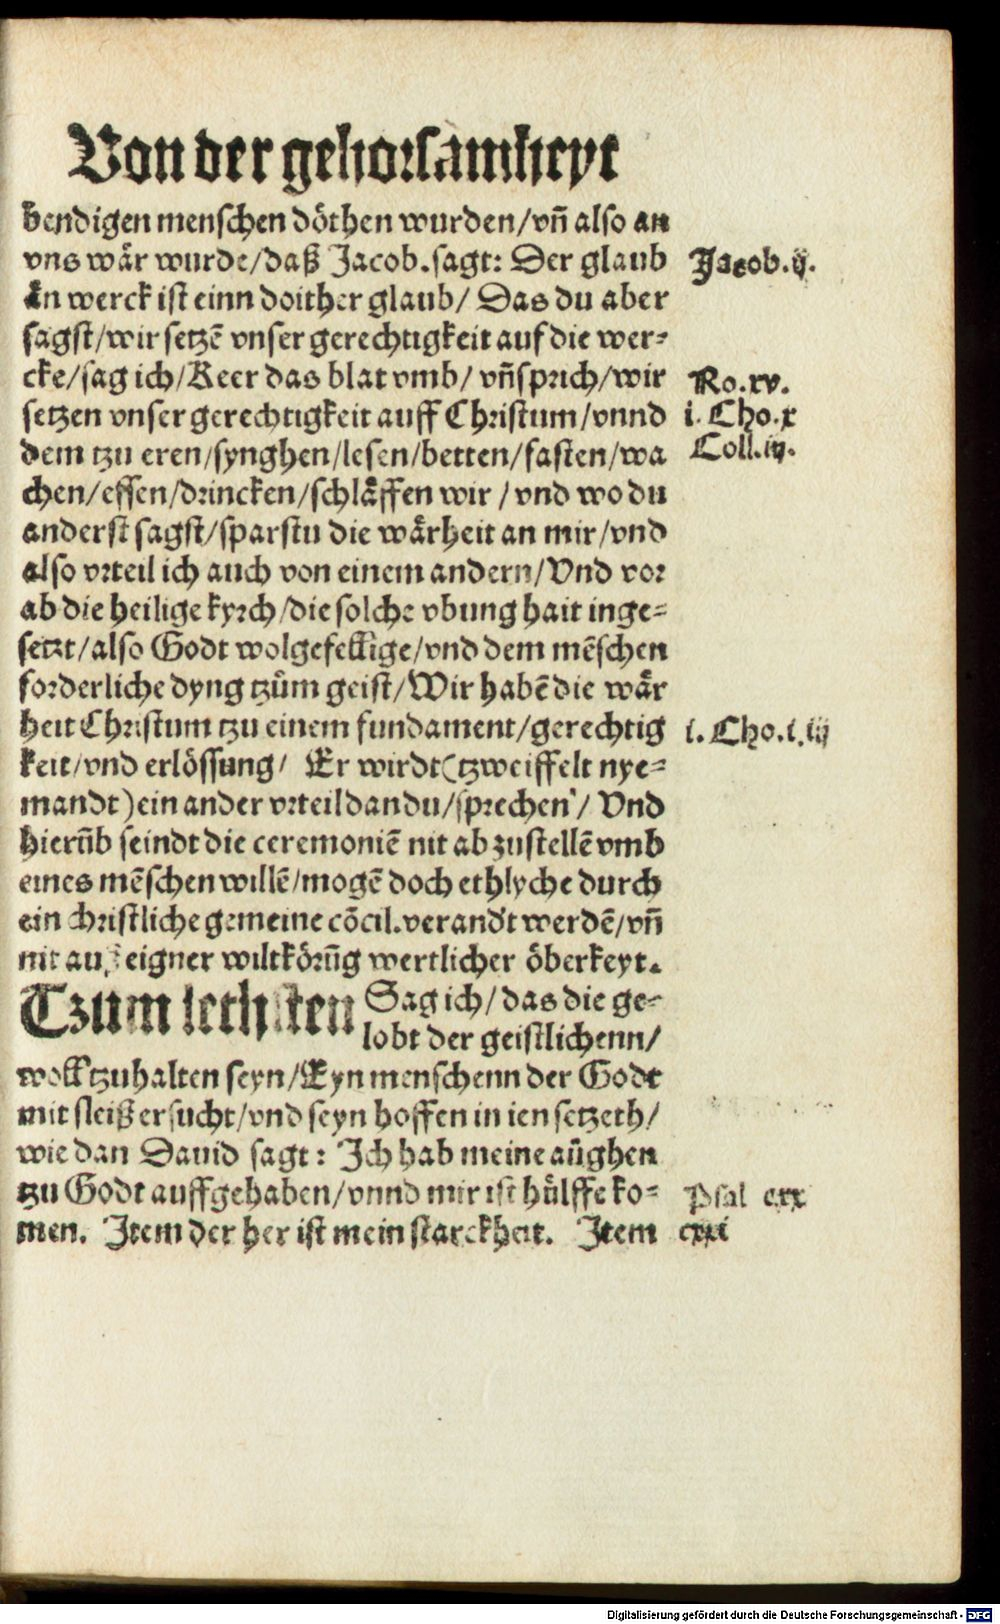 Von der gehorsamheyt
bendigen menschen döthen wurden/vñ also an
vns wär wurde/daß Jacob.sagt: Der glaub
Jacob.ij.
än werck ist einn doither glaub/ Das du aber
sagst/wir setzē vnser gerechtigkeit auf die wer-
cke/sag ich/Keer das blat vmb/ vñ sprich/wir
Ro.xv.
setzen vnser gerechtigkeit auff Christum/vnnd
i. Cho.x
dem tzu eren/synghen/lesen/betten/fasten/wa
Coll.iij.
chen/essen/drincken/schläffen wir / vnd wo du
anderst sagst/sparstu die wärheit an mir/vnd
also vrteil ich auch von einem andern/Vnd vor
ab die heilige kyrch/die solche vbung hait inge-
setzt/also Godt wolgefellige/vnd dem mēschen
forderliche dyng tzům geist/Wir habē die wär
heit Christum tzu einem fundament/gerechtig
i. Cho.i.iij
keit/vnd erlössung/ Er wirdt(tzweiffelt nye-
mandt)ein ander vrteil dan du/sprechen/ Vnd
hierūb seindt die ceremoniē nit ab zustellē vmb
eines mēschen willē/mogē doch ethlyche durch
ein christliche gemeine cōcil.verandt werdē/vñ
nit auß eigner wiltkörūg wertlicher öberkeyt.
Tzum lethsten Sag ich/das die ge-
lobt der geistlichenn/
woll tzuhalten seyn/Eyn menschenn der Godt
mit fleiß ersucht/vnd seyn hoffen in ien setzeth/
wie dan Dauid sagt: Ich hab meine aüghen
tzu Godt auffgehaben/vnnd mir ist hülffe ko-
Psal cxx
men. Item der her ist mein starckheit. Item
cxxi
Digitalisierung gefördert durch die Deutsche Forschungsgemeinschaft - DFG